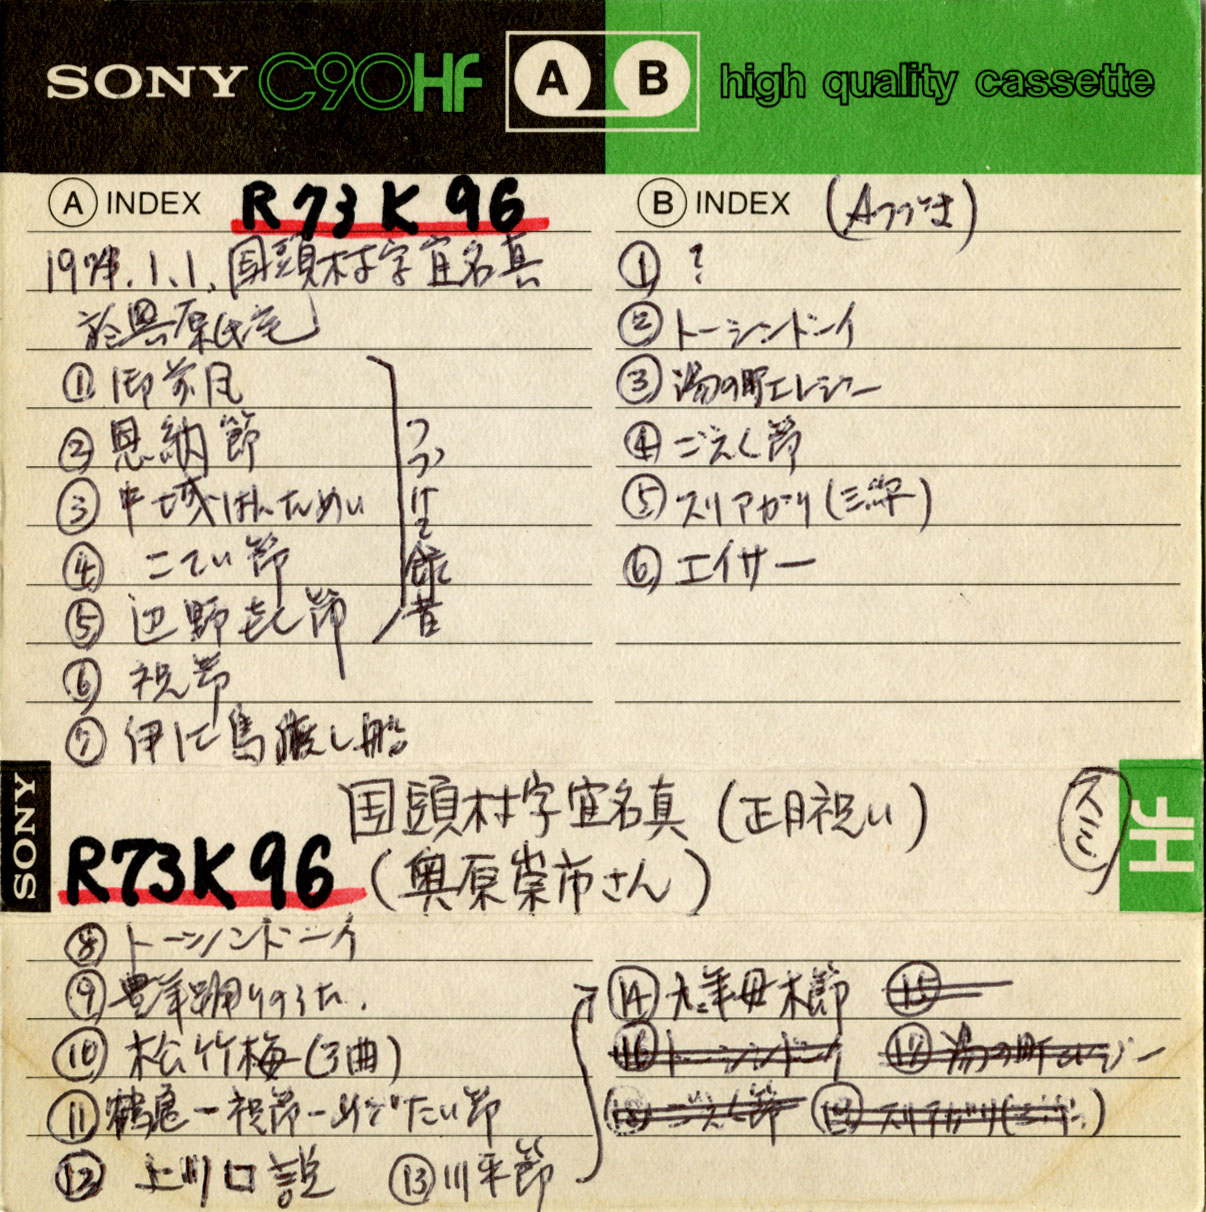 SONY C90HF A B high quality cassette
A INDEX R73K96
1974.1.1. 国頭村字宜名真
於奥原氏宅
① 御前風
② 恩納節
③ 中城はんためい
④ こてい節
⑤ 辺野喜節
つづけて録音
⑥ 祝節
⑦ 伊江島渡し船
B INDEX (Aつづき)
① ?
② トーシンドーイ
③ 湯の町エレジー
④ ごえく節
⑤ スリアガリ(三線)
⑥ エイサー
SONY
国頭村字宜名真(正月祝い)
R73K96 (奥原崇市さん)
スミ
HF
⑧ トーシンドーイ
⑨ 豊年踊りのうた.
⑩ 松竹梅(3曲)
⑪ 鶴亀ー祝節ーめでたい節
⑫ 上り口説 ⑬ 川平節
⑭ 九年母木節 ⑮
⑯ トーシンドーイ ⑰ 湯の町エレジー
⑱ ごえく節 ⑲ スリアガリ(三線)